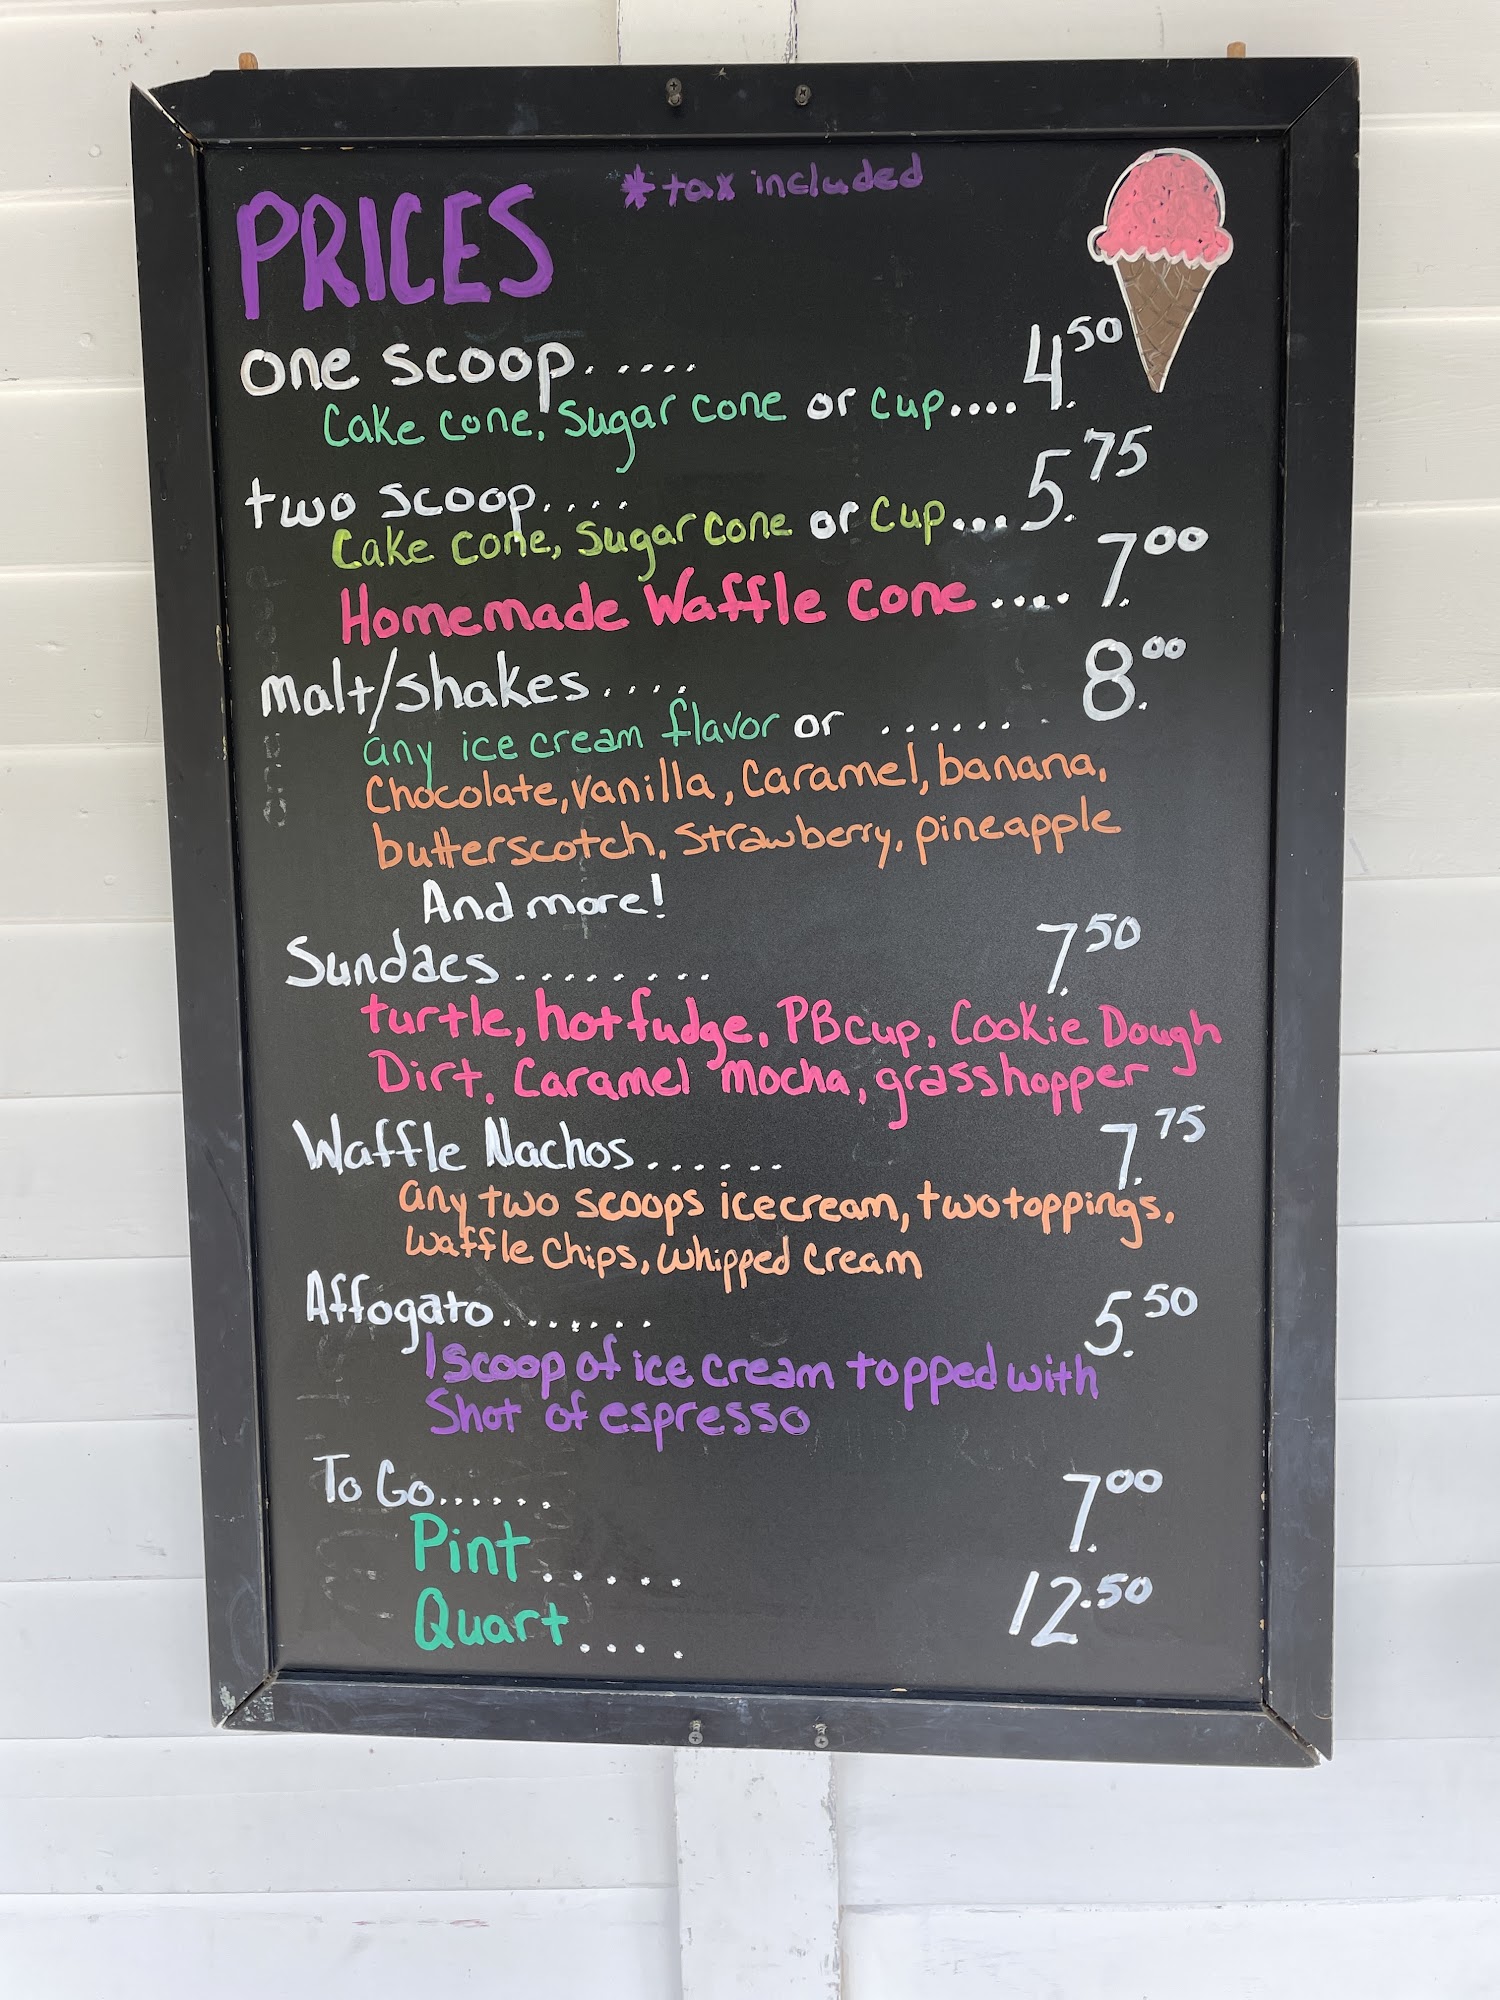 PRICES *tax included
one scoop..... 4.50
Cake cone, Sugar cone or cup....
two scoop.... 5.75
Cake cone, sugar cone or cup....
Homemade Waffle cone .... 7.00
malt/shakes.... 8.00
any ice cream flavor or .......
Chocolate, vanilla, Caramel, banana,
butterscotch, strawberry, pineapple
And more!
Sundaes ......... 7.50
turtle, hot fudge, PB cup, Cookie Dough
Dirt, Caramel Mocha, grasshopper
Waffle Nachos...... 7.75
any two scoops ice cream, two toppings,
waffle chips, whipped cream
Affogato....... 5.50
1 scoop of ice cream topped with
Shot of espresso
To Go...... 7.00
Pint.....
Quart.... 12.50